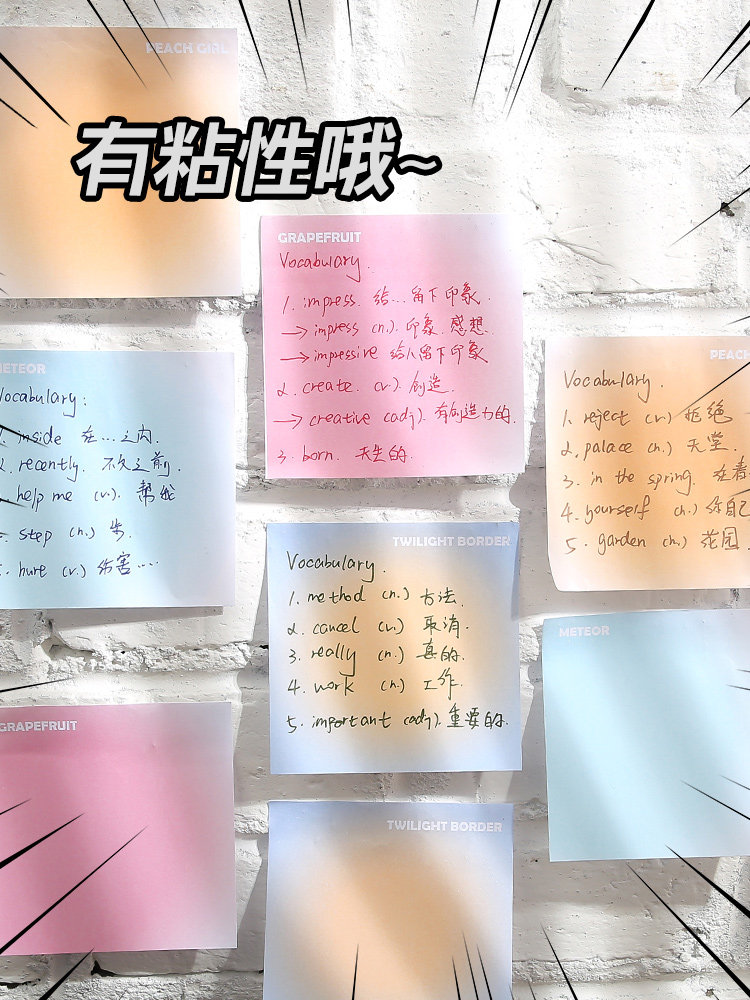 PEACH GIRL
有粘性哦~
GRAPEFRUIT
Vocabulary.
1. impress. 给...留下印象.
→ impress (n.). 印象. 感想.
→ impressive 给人留下印象
2. create. (v.). 创造.
→ creative (adj). 有创造力的.
3. born. 天生的.
METEOR
Vocabulary:
1. inside 在...之内.
2. recently. 不久之前.
. help me (v.). 帮我
. step (n.) 步.
. hurt (v.) 伤害....
PEACH
Vocabulary.
1. reject (v.) 拒绝.
2. palace (n.) 天堂.
3. in the spring. 在春
4. yourself (n.) 你自己
5. garden (n.) 花园.
TWILIGHT BORDER
Vocabulary.
1. method (n.) 方法.
2. cancel (v.) 取消.
3. really (n.) 真的.
4. work (n.) 工作.
5. important (adj). 重要的.
METEOR
GRAPEFRUIT
TWILIGHT BORDER